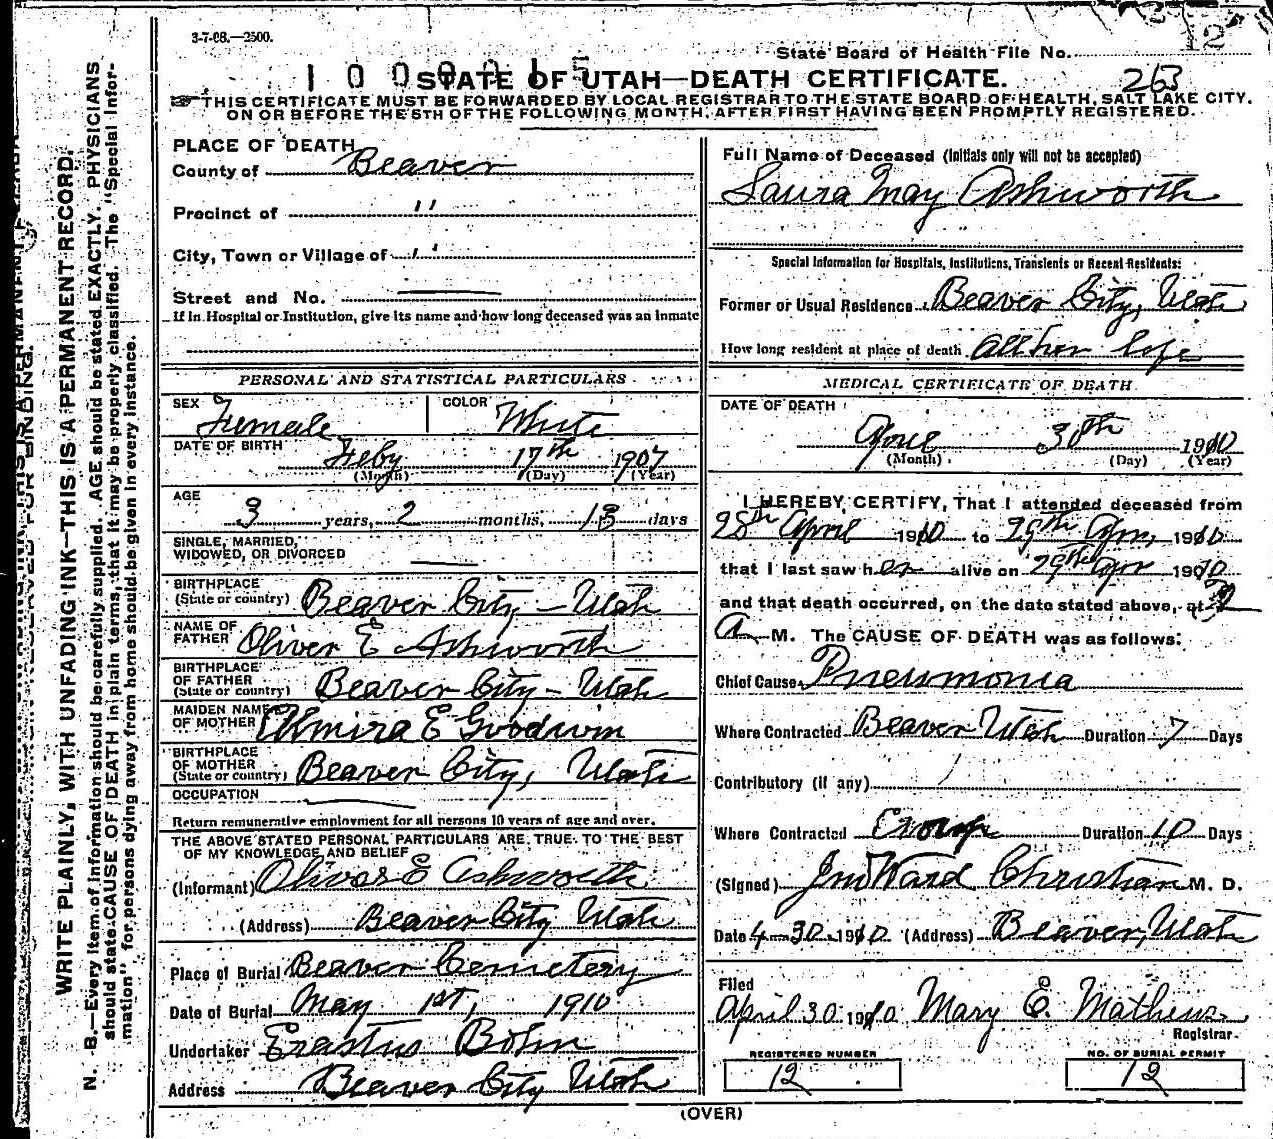 3-7-08.—2500.
12
State Board of Health File No.
STATE OF UTAH—DEATH CERTIFICATE.
263
THIS CERTIFICATE MUST BE FORWARDED BY LOCAL REGISTRAR TO THE STATE BOARD OF HEALTH, SALT LAKE CITY.
ON OR BEFORE THE 5TH OF THE FOLLOWING MONTH, AFTER FIRST HAVING BEEN PROMPTLY REGISTERED.
WRITE PLAINLY, WITH UNFADING INK—THIS IS A PERMANENT RECORD.
N. B.—Every item of information should be carefully supplied. AGE should be stated EXACTLY. PHYSICIANS
should state CAUSE OF DEATH in plain terms, that it may be properly classified. The "Special Infor-
mation" for persons dying away from home should be given in every instance.
PLACE OF DEATH
County of Beaver
Precinct of "
City, Town or Village of "
Street and No. —
If in Hospital or Institution, give its name and how long deceased was an inmate
PERSONAL AND STATISTICAL PARTICULARS
SEX Female COLOR White
DATE OF BIRTH Feby 17th 1907
(Month) (Day) (Year)
AGE
3 years, 2 months, 13 days
SINGLE, MARRIED,
WIDOWED, OR DIVORCED —
BIRTHPLACE
(State or country) Beaver City - Utah
NAME OF
FATHER Oliver E Ashworth
BIRTHPLACE
OF FATHER
(State or country) Beaver City - Utah
MAIDEN NAME
OF MOTHER Elmira E Goodwin
BIRTHPLACE
OF MOTHER
(State or country) Beaver City, Utah
OCCUPATION —
Return remunerative employment for all persons 10 years of age and over.
THE ABOVE STATED PERSONAL PARTICULARS ARE TRUE TO THE BEST
OF MY KNOWLEDGE AND BELIEF
(Informant) Oliver E Ashworth
(Address) Beaver City Utah
Place of Burial Beaver Cemetery
Date of Burial May 1st, 1910
Undertaker Erastus Bohn
Address Beaver City Utah
Full Name of Deceased (Initials only will not be accepted)
Laura May Ashworth
Special Information for Hospitals, Institutions, Transients or Recent Residents:
Former or Usual Residence Beaver City, Utah
How long resident at place of death All her life
MEDICAL CERTIFICATE OF DEATH
DATE OF DEATH
April 30th 1910
(Month) (Day) (Year)
I HEREBY CERTIFY, That I attended deceased from
28th April 1910 to 29th Apr, 1910
that I last saw her alive on 29th Apr 1910
and that death occurred, on the date stated above, at 2
A M. The CAUSE OF DEATH was as follows:
Chief Cause Pneumonia
Where Contracted Beaver Utah Duration 7 Days
Contributory (if any)
Where Contracted Croup Duration 10 Days
(Signed) Jno Ward Christian M. D.
Date 4-30-1910 (Address) Beaver, Utah
Filed
April 30 1910 Mary E. Mathews
Registrar
REGISTERED NUMBER
12
NO. OF BURIAL PERMIT
12
(OVER)